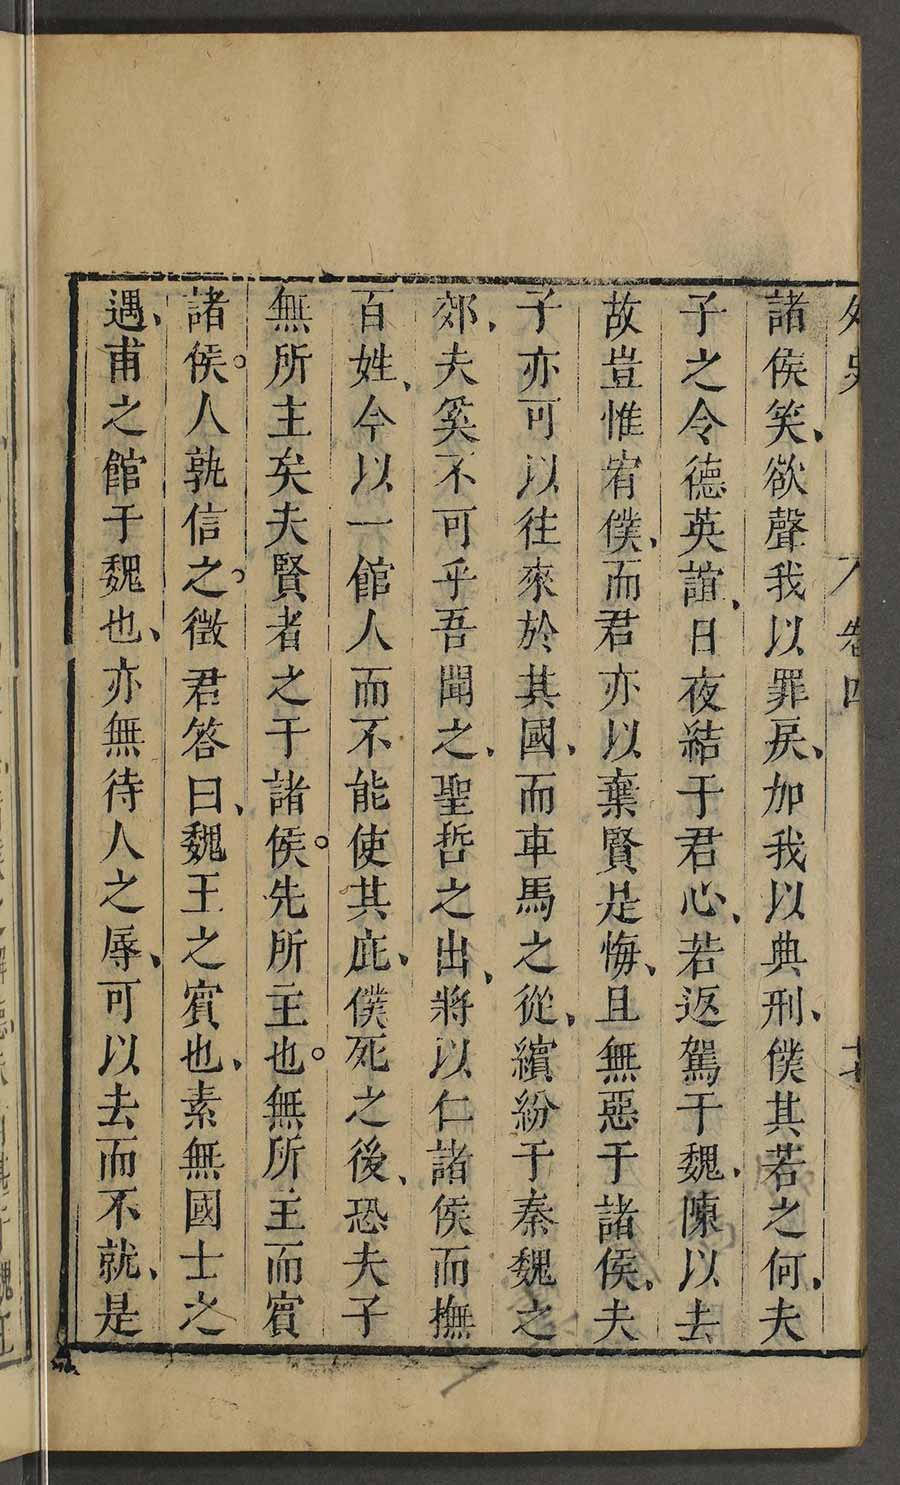 諸侯笑、欲聲我以罪戾、加我以典刑、僕其若之何、夫
子之令德英誼、日夜結于君心、若返駕于魏、陳以去
故豈惟宥僕、而君亦以棄賢是悔、且無惡于諸侯、夫
子亦可以往來於其國、而車馬之從、繽紛于秦魏之
郊、夫奚不可乎吾聞之、聖哲之出、將以仁諸侯而撫
百姓、今以一館人而不能使其庇、僕死之後、恐夫子
無所主矣夫賢者之于諸侯。先所主也。無所主而賓
諸侯。人孰信之。徵君答曰、魏王之賓也、素無國士之
遇、甫之館于魏也、亦無待人之辱、可以去而不就、是